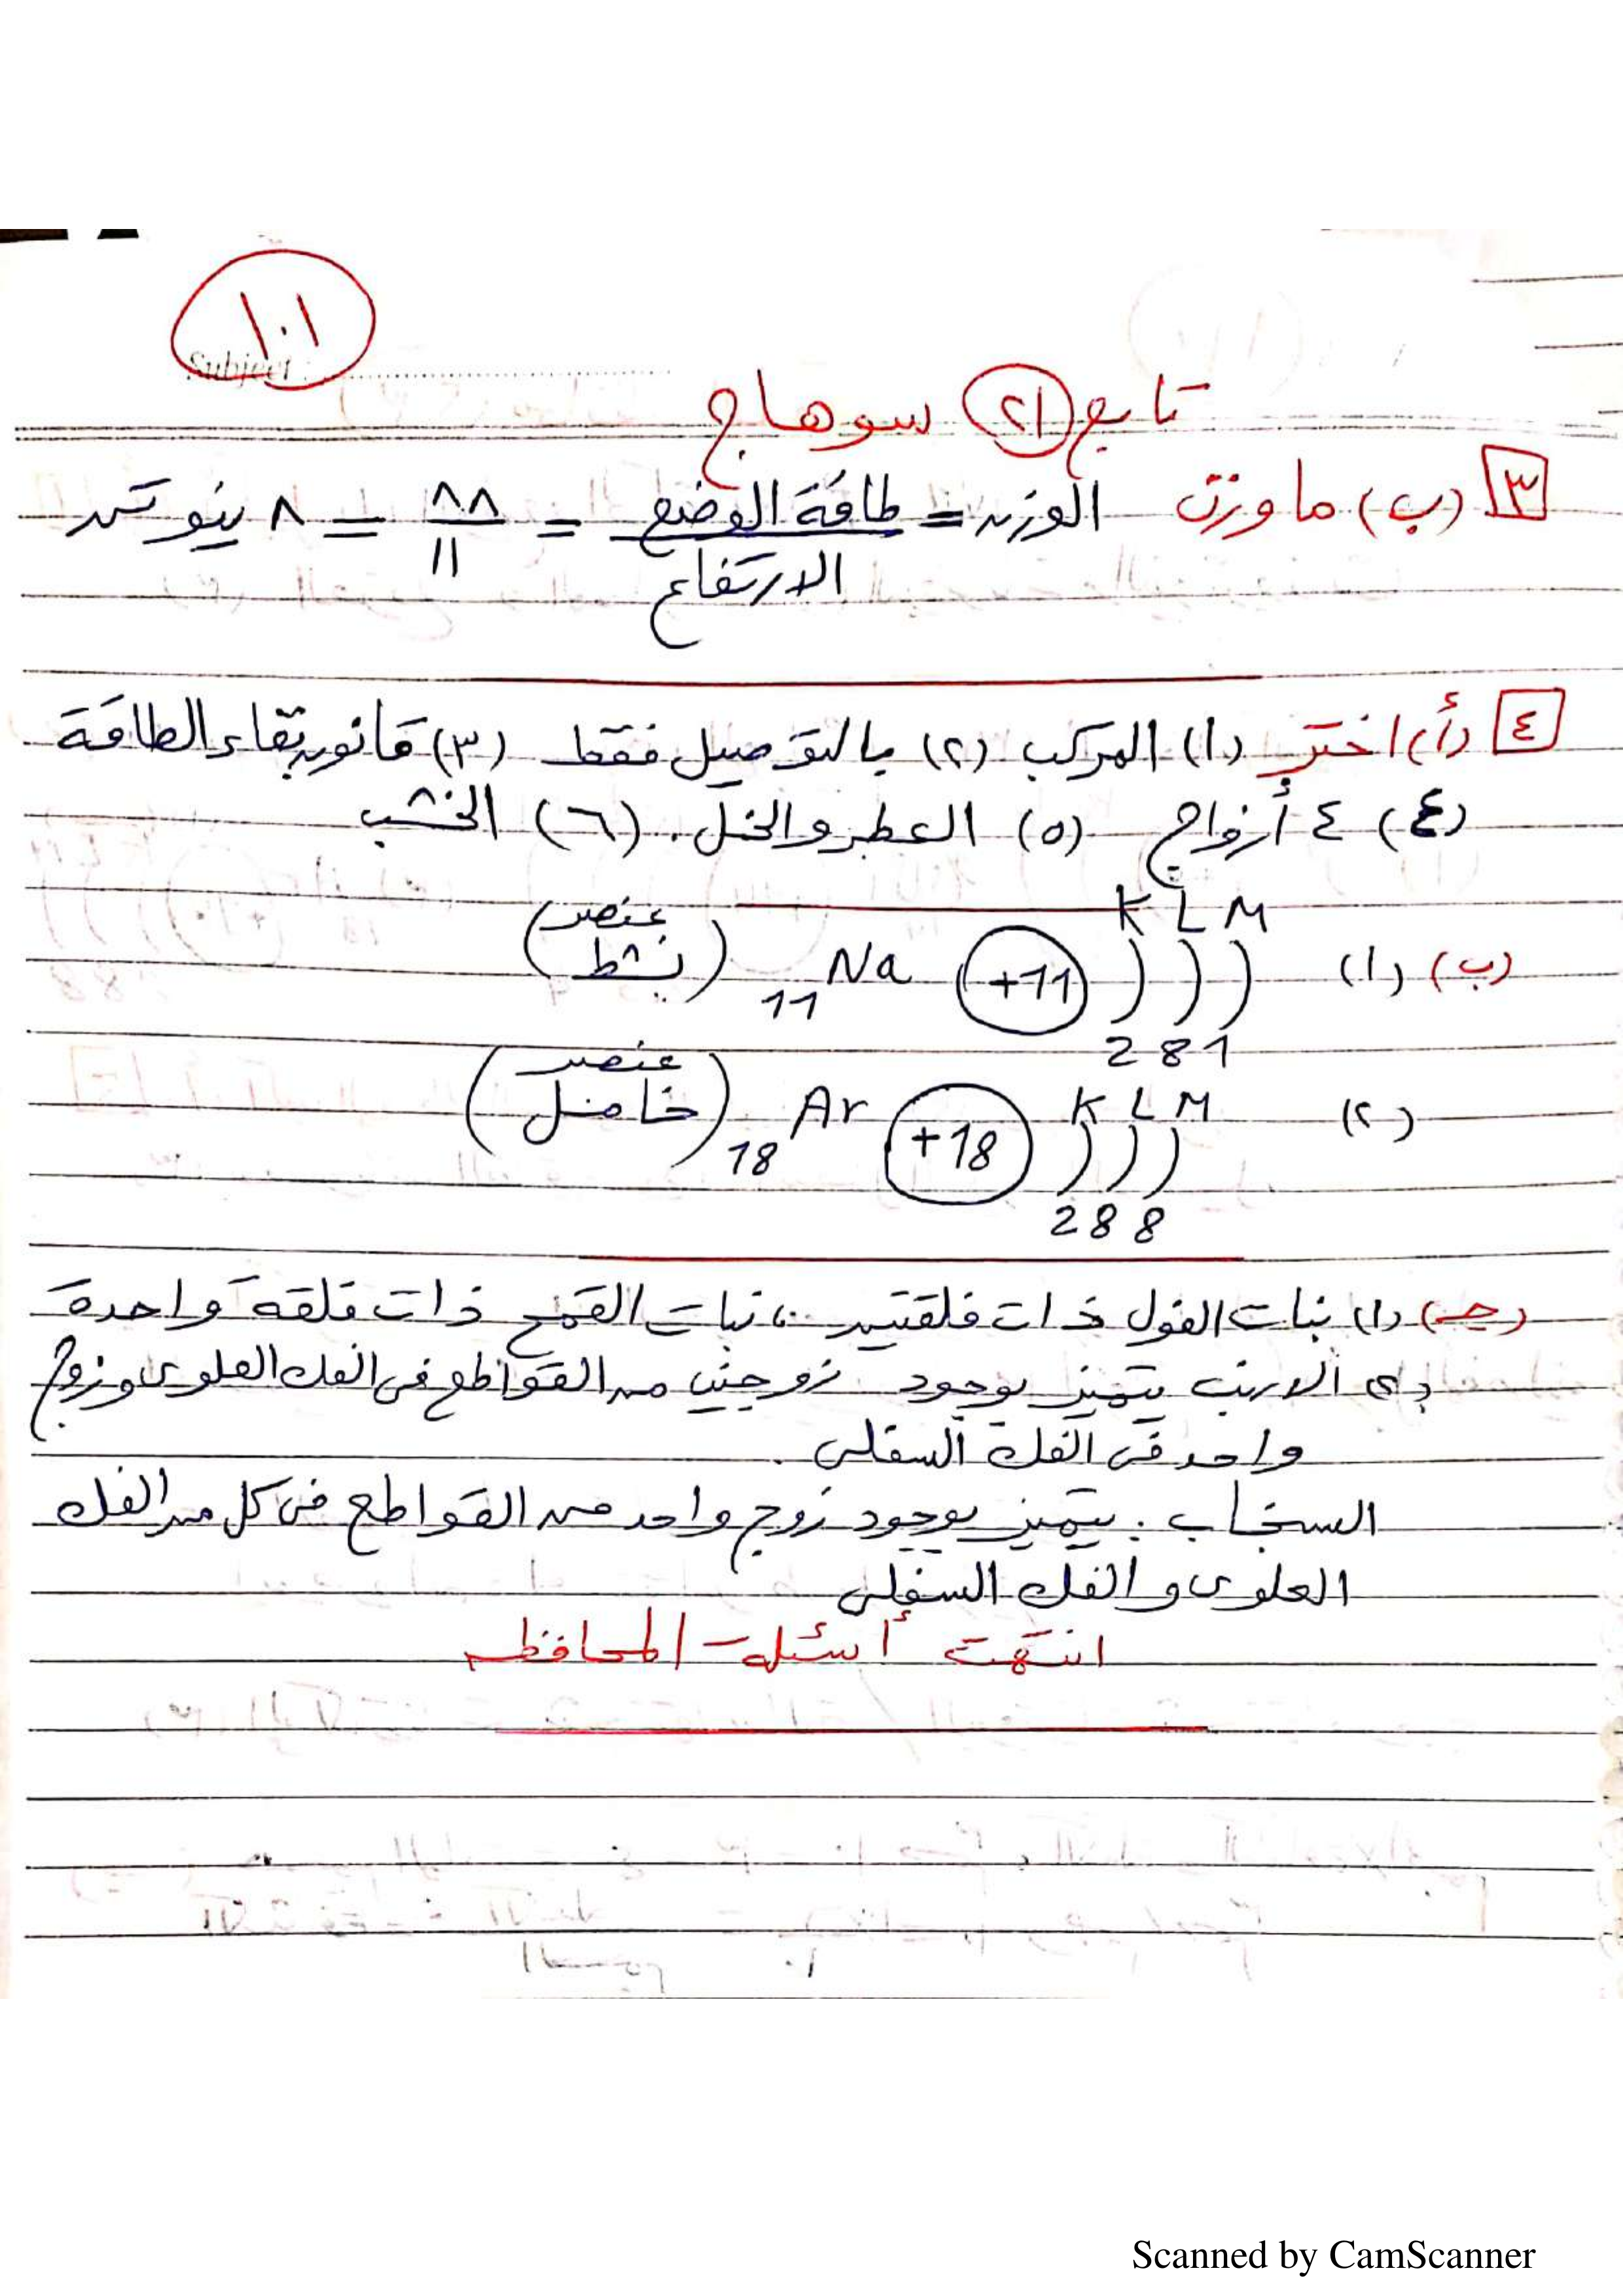 ١٠١
Subject :
تابع (٢١) سوهاج
٣ (ب) ما وزن الوزن = طاقة الوضع = ٨٨ = ٨ نيوتن
الارتفاع ١١
٤ (أ) اختر (١) المركب (٢) بالتوصيل فقط (٣) قانون بقاء الطاقة
(٤) ٤ أزواج (٥) العطر والخل. (٦) الخشب
K L M
(ب) (١) +11 11Na (عنصر نشط)
2 8 1
K L M
(٢) +18 18Ar (عنصر خامل)
2 8 8
(جـ) (١) نبات الفول ذات فلقتين ،، نبات القمح ذات فلقة واحدة
(٢) الارنب يتميز بوجود زوجين من القواطع فى الفك العلوى وزوج
واحد فى الفك السفلى.
السنجاب: يتميز بوجود زوج واحد من القواطع فى كل من الفك
العلوى والفك السفلى
انتهت أسئلة المحافظه
Scanned by CamScanner